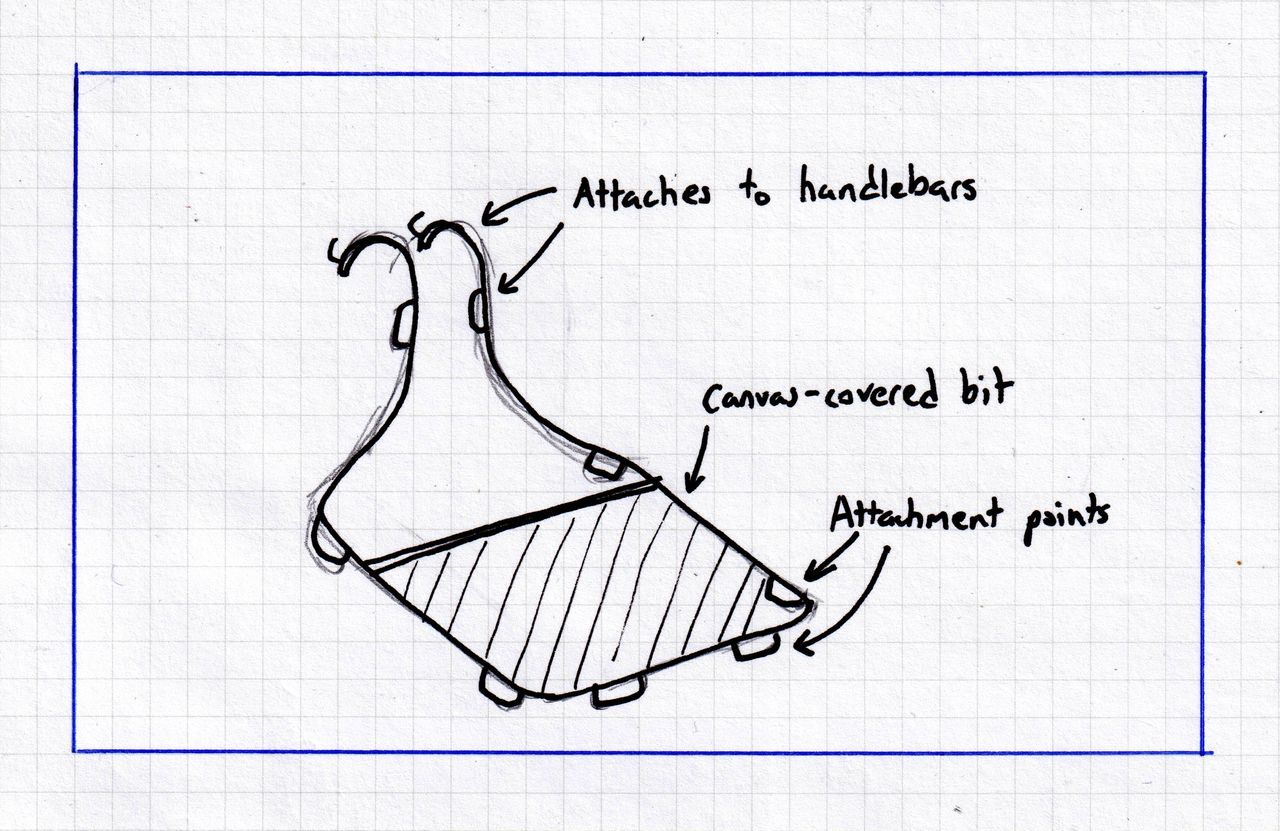 Attaches to handlebars
Canvas-covered bit
Attachment points